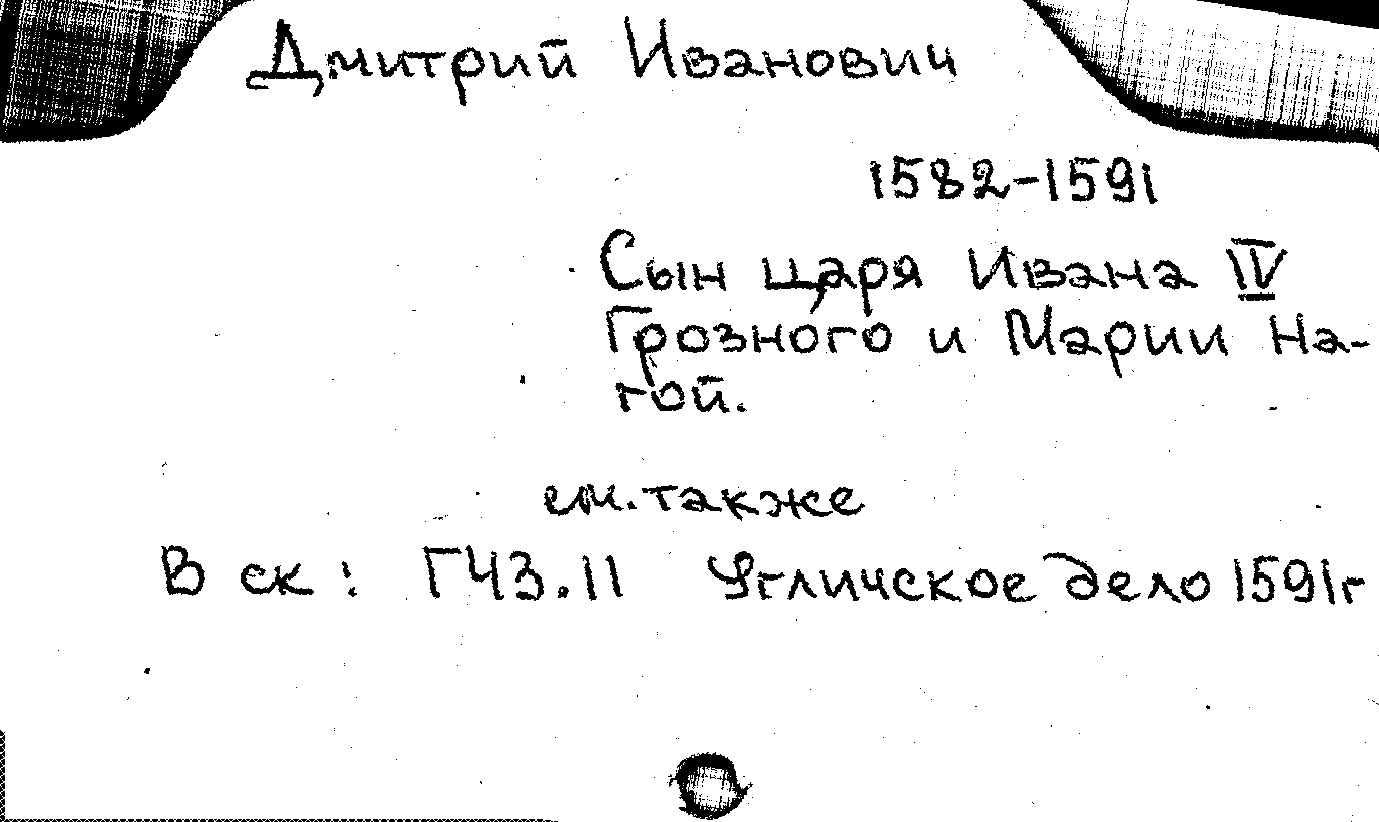 Дмитрий Иванович
1582-1591
Сын царя Ивана IV
Грозного и Марии На-
гой.
см. также
В ск: Г43.11 Угличское дело 1591г